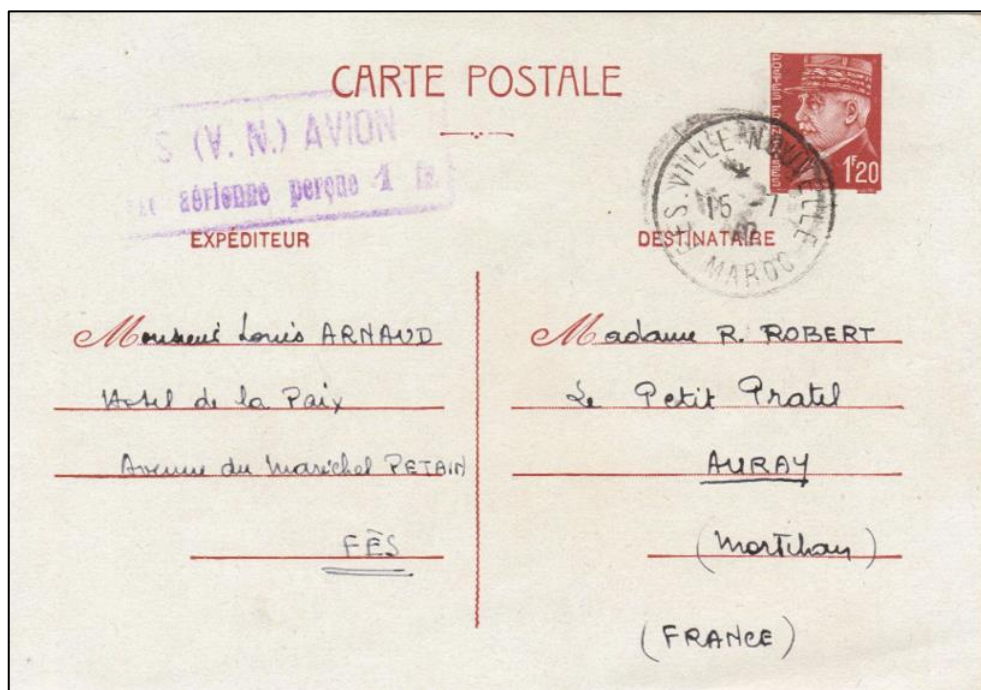 CARTE POSTALE
POSTES FRANÇAISES
1F20
(V. N.) AVION
aérienne perçue 1 fr.
FES-VILLE NOUVELLE
15 -7
MAROC
EXPÉDITEUR
Monsieur Louis ARNAUD
Hotel de la Paix
Avenue du Maréchal PETAIN
FÈS
DESTINATAIRE
Madame R. ROBERT
Le Petit Pratel
AURAY
(Morbihan)
(FRANCE)